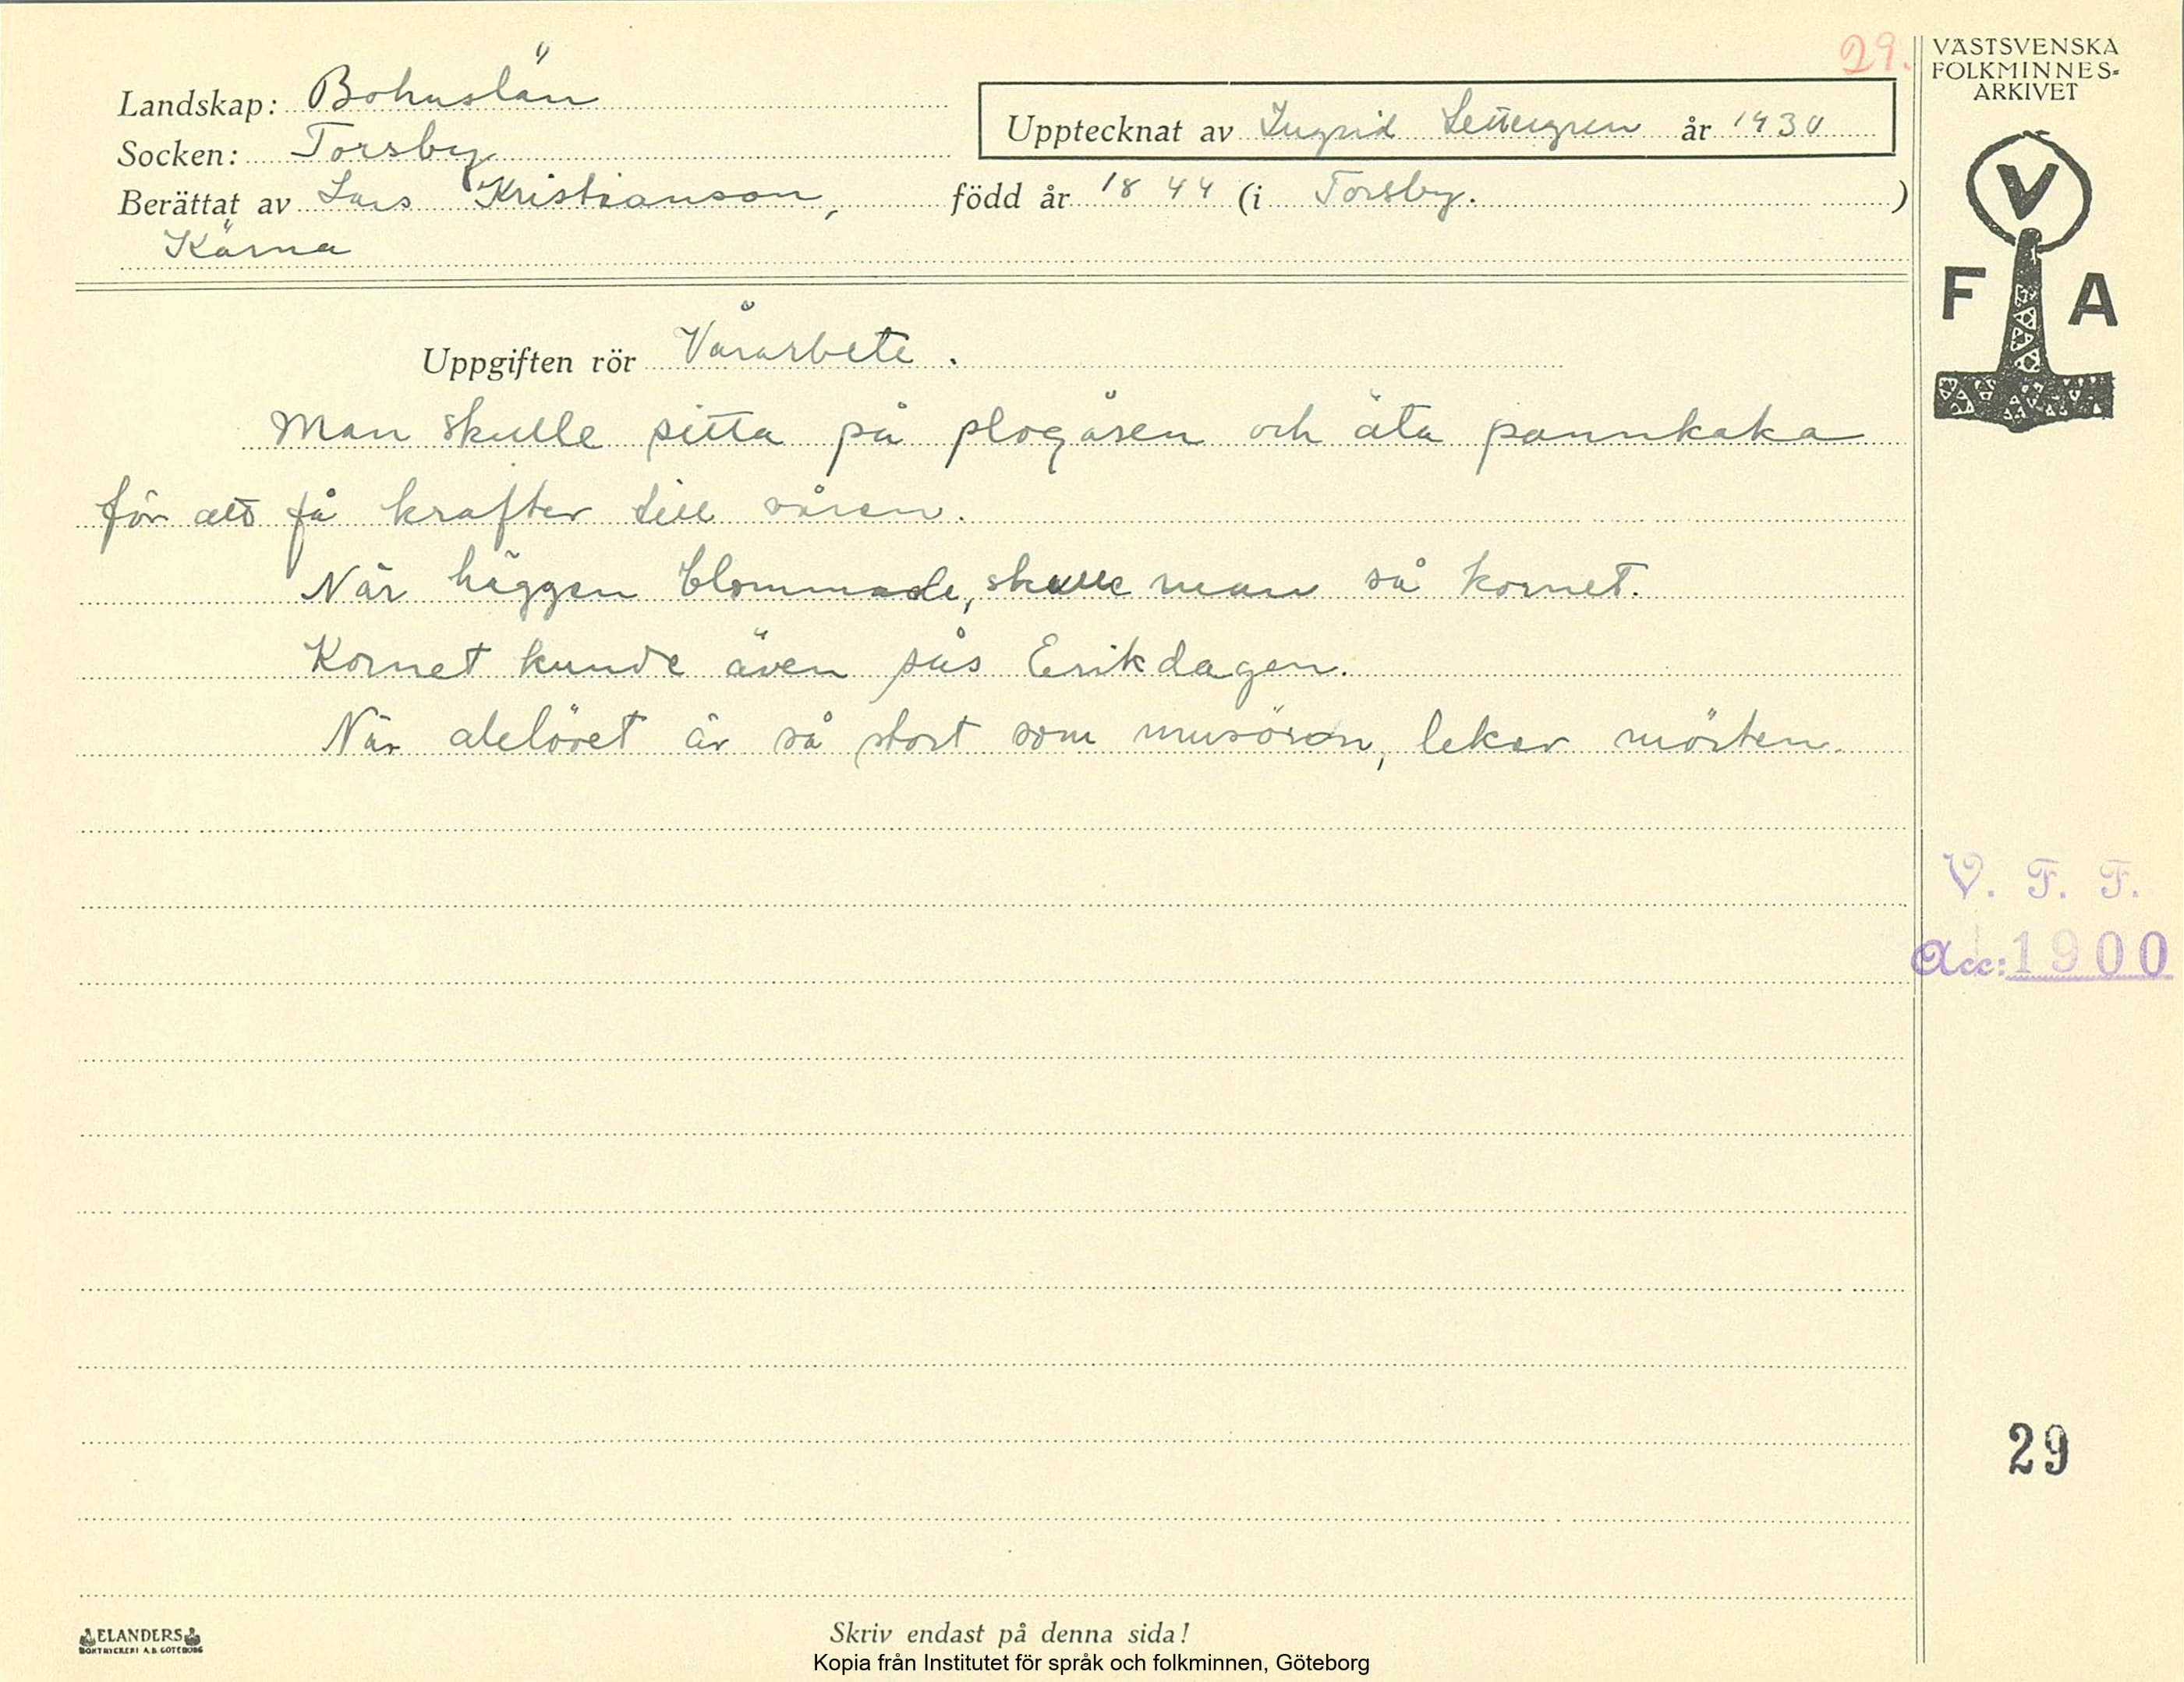 29.
VÄSTSVENSKA
FOLKMINNES-
ARKIVET
Landskap: Bohuslän
Upptecknat av Ingrid Settergren år 1930
Socken: Torsby
Berättat av Lars Kristianson, född år 1844 (i Torsby. )
Kärna
V
F A
Uppgiften rör Vårarbete.
Man skulle sitta på plogåsen och äta pannkaka
för att få krafter till våren.
När häggen blommade, skulle man så kornet.
Kornet kunde även sås Erikdagen.
När alelövet är så stort som musöron, leker mörten.
V. F. F.
Acc: 1900
29
ELANDERS
BOKTRYCKERI A.B. GÖTEBORG
Skriv endast på denna sida!
Kopia från Institutet för språk och folkminnen, Göteborg